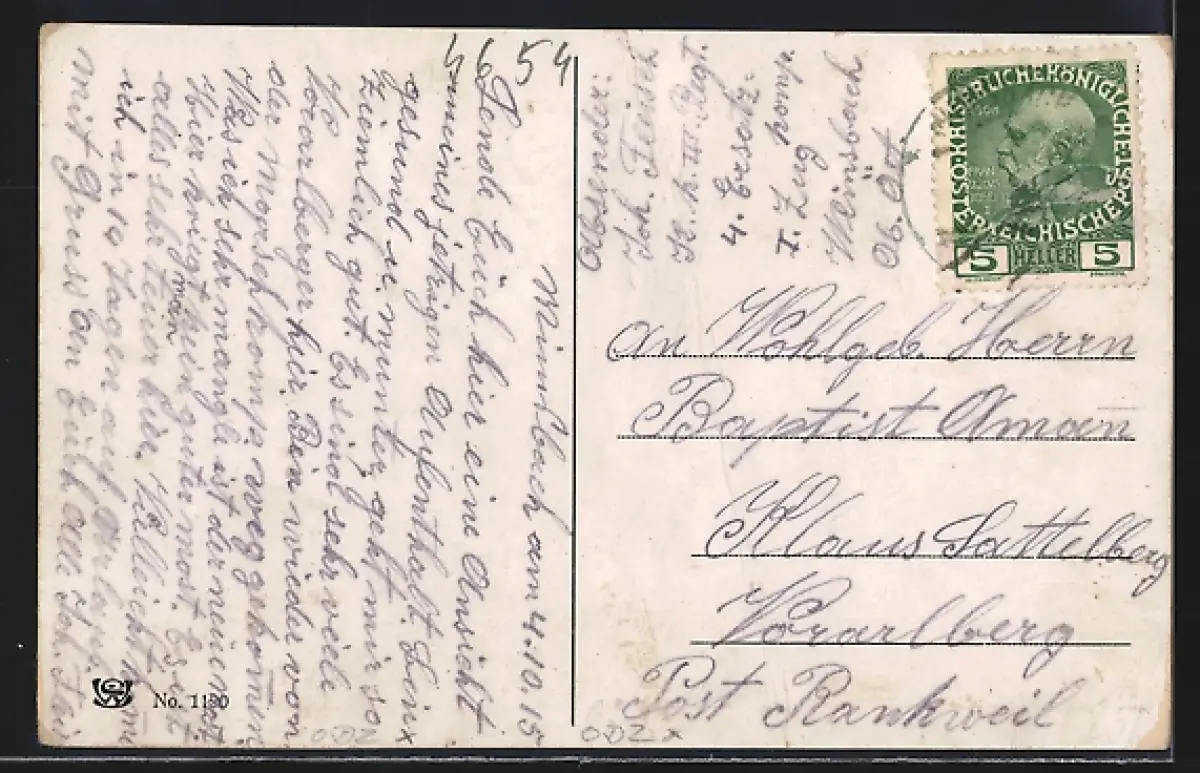 4654
Wimsbach am 4.10.15
Sende Euch hier eine Ansicht
meines jetzigen Aufenthalt. Binn
gesund u. munter, geht mir so
Zimlich gut. Es sind sehr viele
Vorarlberger hier. Bin wider von
der Marschkomp. weg gekomen
Was ich sehr mangle ist der mein
Hier krigt man kein guter most. Es ist
alles sehr teuer hier. Villeicht
ich in 14 Tagen auf Urlaub
mit Gruss an Euch alle Joh.
Absender:
Joh.
K. k. III. Regt.
4. Ersatz-
I. Zug komp.
Wimsbach
Ob. Öst
ÖSTERREICHISCHE POST
KAISERLICHE KÖNIGLICHE
5 HELLER 5
An Wohlgeb. Herrn
Baptist Aman̄
Klaus Sattelberg
Vorarlberg
Post Rankweil
No. 1190